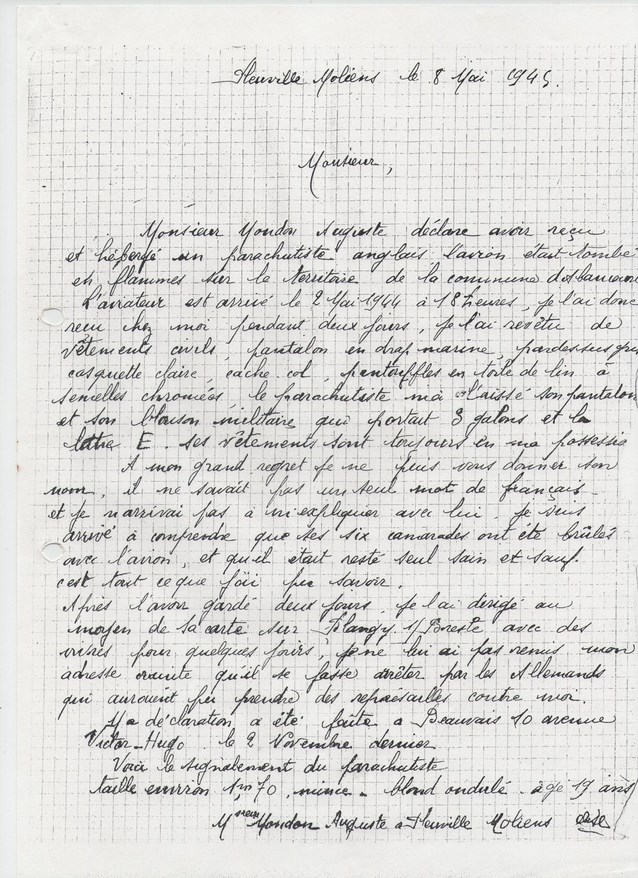 fleuville Moliens le 8 Mai 1945.
Monsieur,
Monsieur Mondon Auguste déclare avoir reçu
et hébergé un parachutiste anglais l'avion était tombé
en flammes sur le territoire de la commune d'
L'aviateur est arrivé le 2 Mai 1944 à 18 heures, je l'ai donc
reçu chez moi pendant deux jours, je l'ai revêtu de
vêtements civils, pantalon en drap marine, pardessus gris
casquette claire, cache col, pantouffles en toile de lin à
semelles , le parachutiste m'a laissé son pantalon
et son blouson militaire qui portait 3 galons et la
lettre E. ses vêtements sont toujours en ma possessio
A mon grand regret je ne puis vous donner son
nom, il ne savait pas un seul mot de français.
et je n'arrivai pas à m'expliquer avec lui, je suis
arrivé à comprendre que ses six camarades ont été brûlés
avec l'avion, et qu'il était resté seul sain et sauf.
c'est tout ce que j'ai pu savoir.
Après l'avoir gardé deux jours, je l'ai dirigé au
moyen de la carte sur Blangy s/ Breste avec des
vivres pour quelques jours, je ne lui ai pas remis mon
adresse crainte qu'il se fasse arrêter par les Allemands
qui auraient pu prendre des représailles contre moi.
Ma déclaration a été faite a Beauvais 10 avenue
Victor-Hugo. le 2 Novembre dernier
Voici le signalement du parachutiste
taille environ 1m70, mince. blond ondulé. âgé 19 ans
Mondon Auguste a fleuville Moliens oise